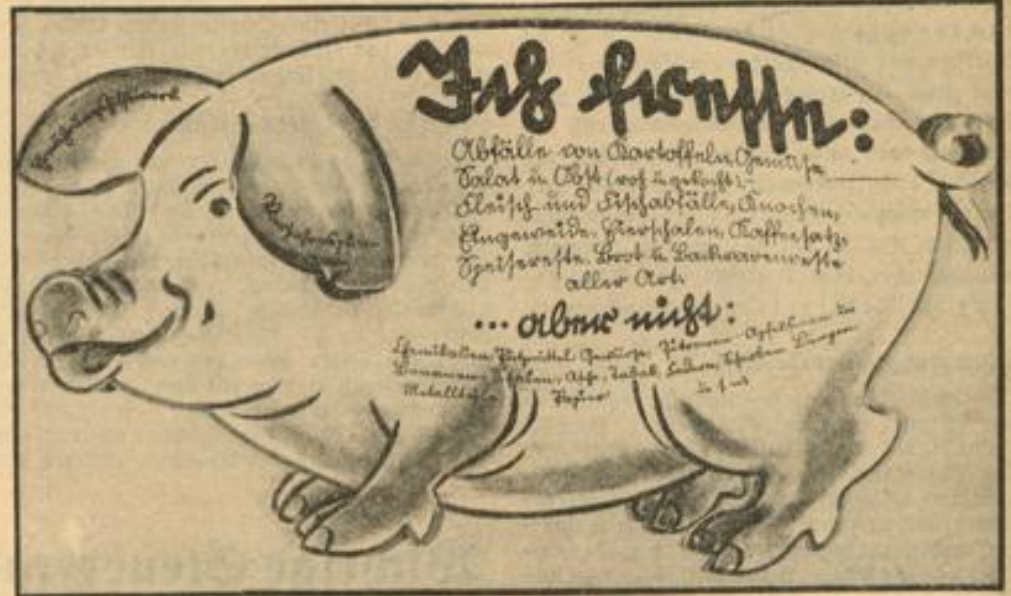 Ernährungshilfswerk
Ich fresse:
Abfälle von Kartoffeln, Gemüse,
Salat u. Obst (roh u. gekocht)
Fleisch- und Fischabfälle, Knochen,
Eingeweide, Eierschalen, Kaffeesatz,
Speisereste, Brot u. Backwarenreste
aller Art.
... aber nicht:
Chemikalien, Putzmittel, Gewürze, Zitronen- Apfelsinen- u.
Bananen-Schalen, Asche, Tabak, Scherben
Metallteile Papier u.s.w.